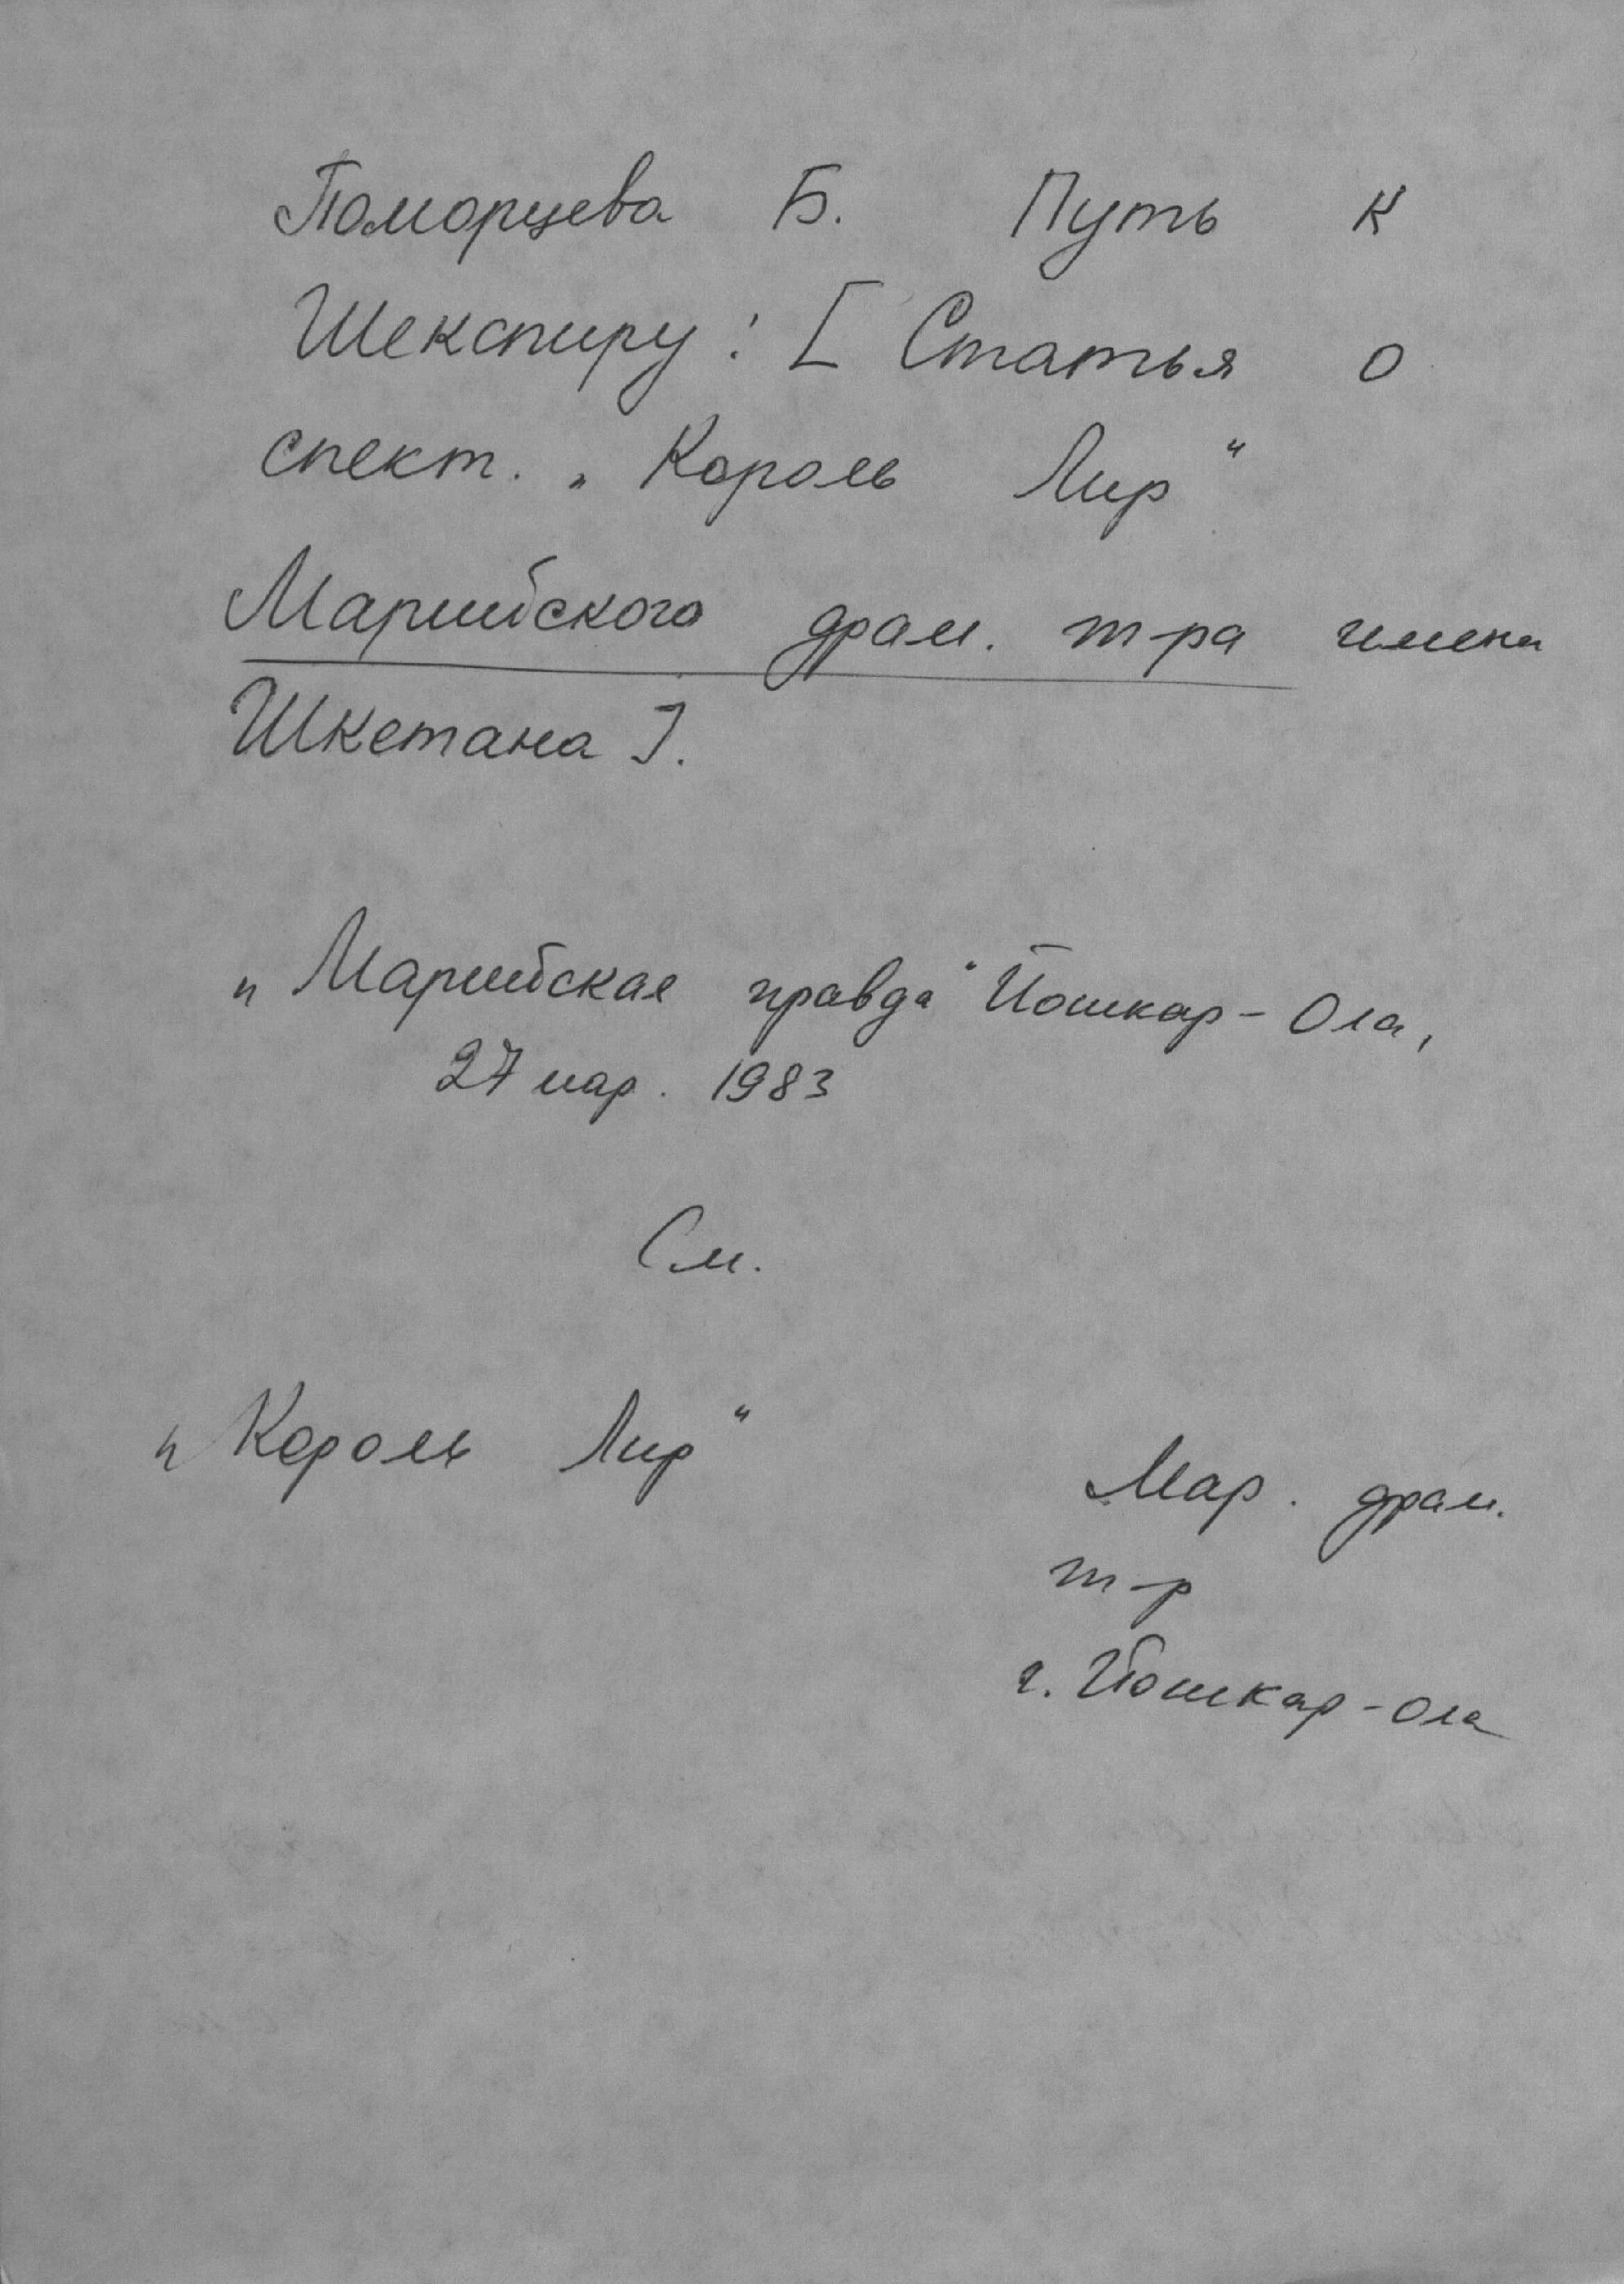 Поморцева Б. Путь к
Шекспиру: [Статья о
спект. „Король Лир“
Марийского драм. т-ра имени
Шкетана].
„Марийская правда“ Йошкар-Ола,
27 мар. 1983
См.
„Король Лир“
Мар. драм.
т-р
г. Йошкар-Ола